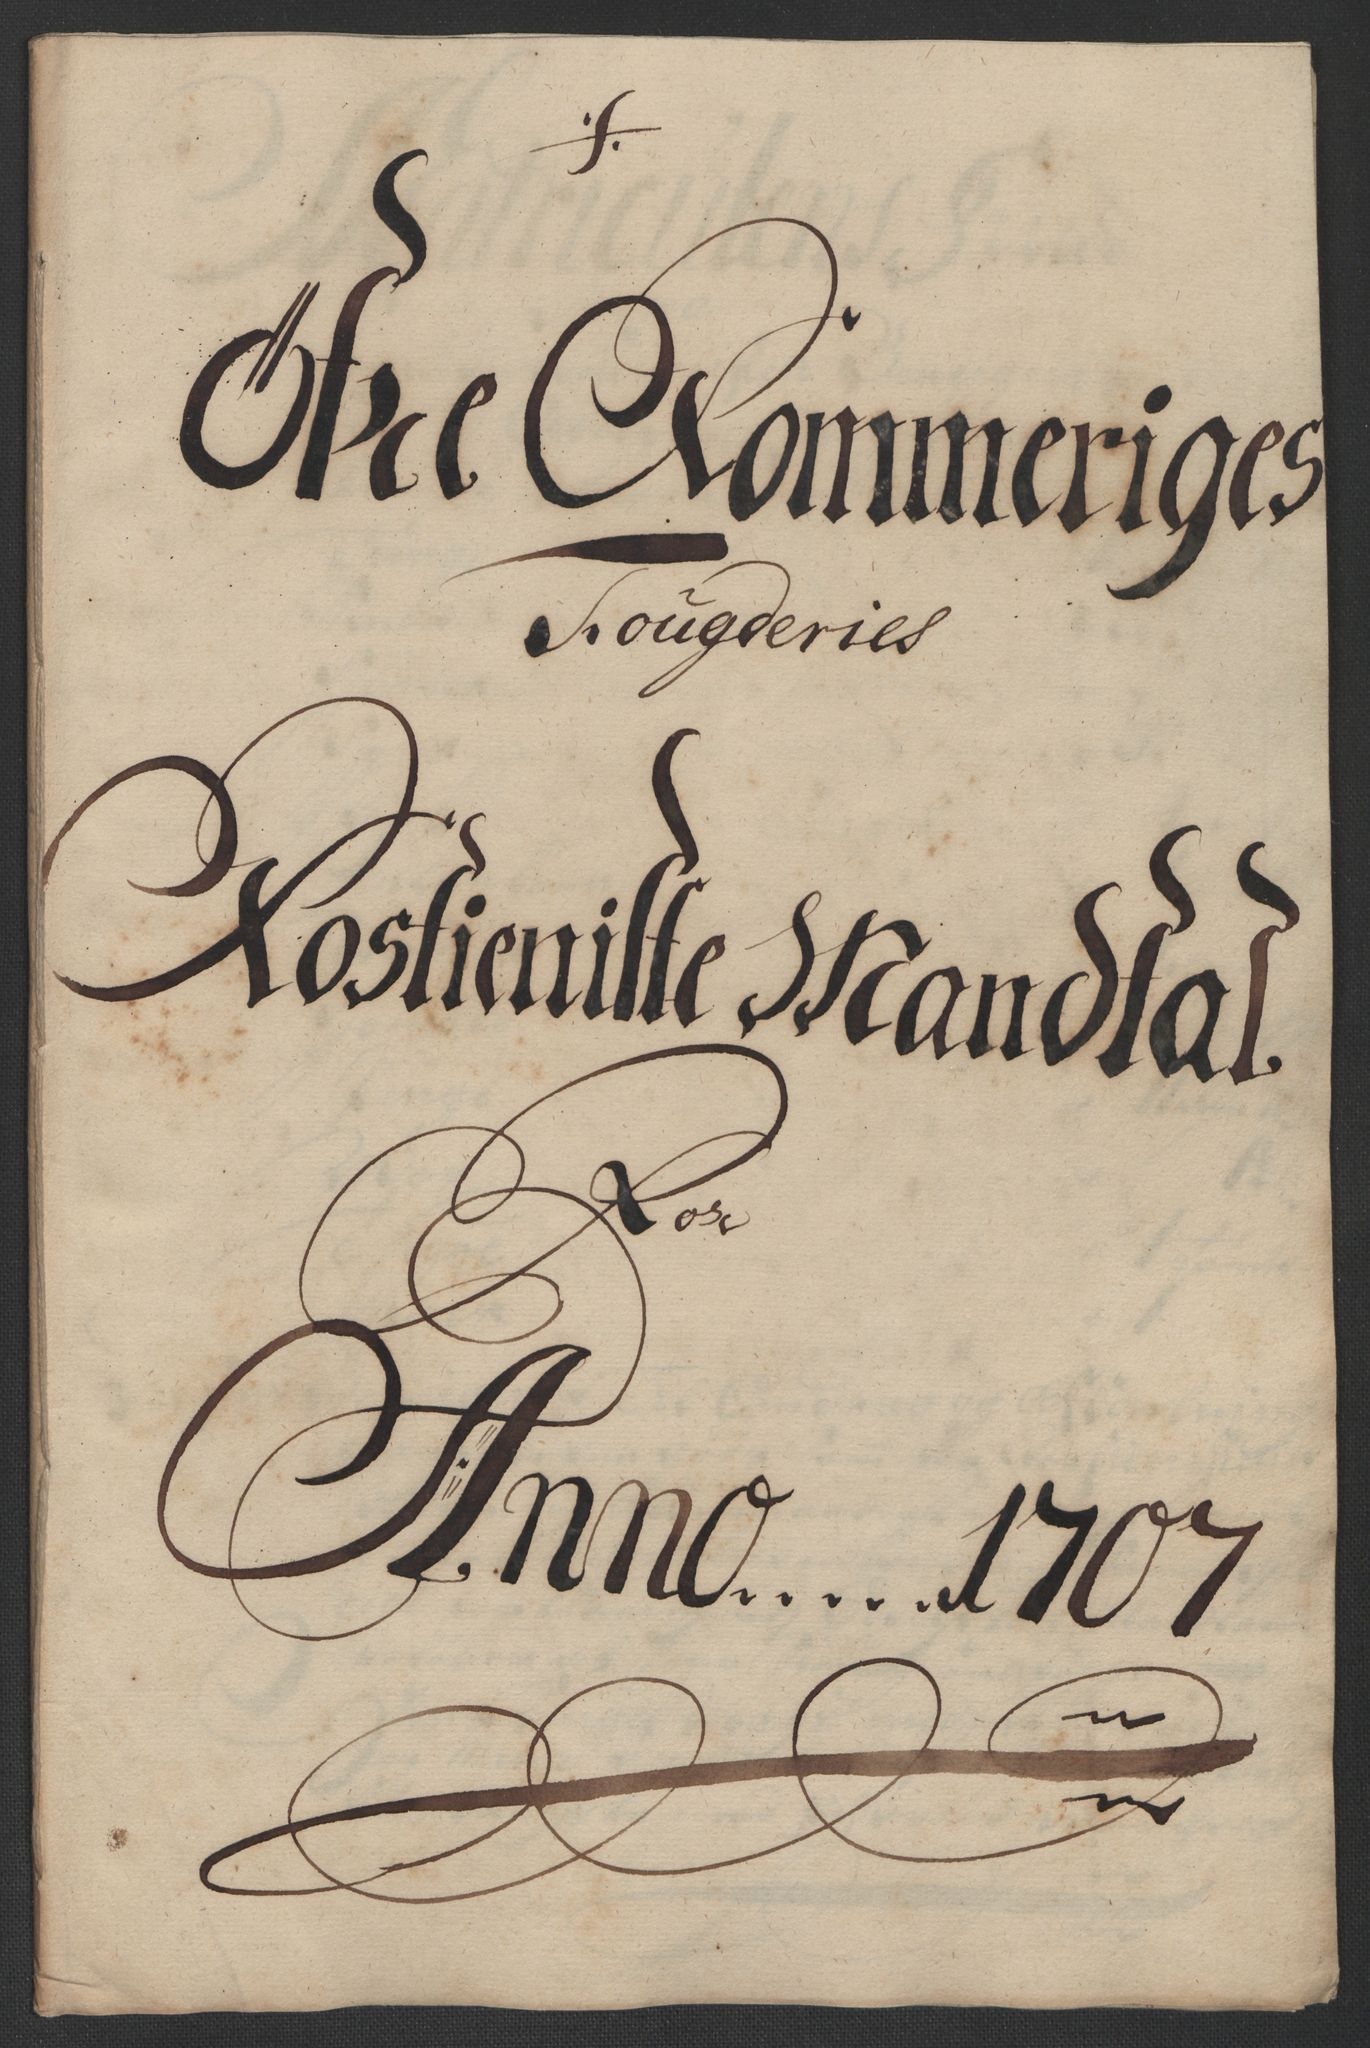 f.
Öfre Rommeriges
Fougderies
Rostieniste Mandtal.
For
Anno......1707